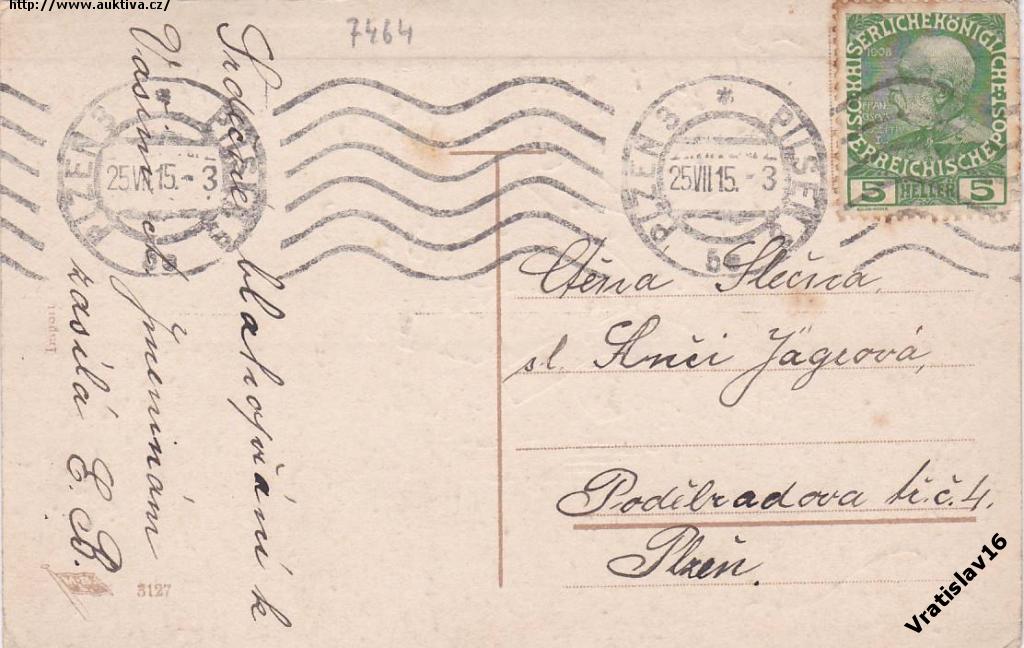 http://www.auktiva.cz/
7464
Srdečné blahopřání k
Vašemu ct. jmeninám
zasílá E. B.
PLZEŇ 3 * PILSEN
25.VII.15.-3
PLZEŇ 3 * PILSEN
25.VII.15.-3
6a
KAISERLICHE KÖNIGLICHE
ÖSTERREICHISCHE POST
1908
5 HELLER 5
Ctěná Slečna
sl. Anči Jägrová,
Poděbradova tř. č. 4.
Plzeň.
Import
3127
Vratislav16